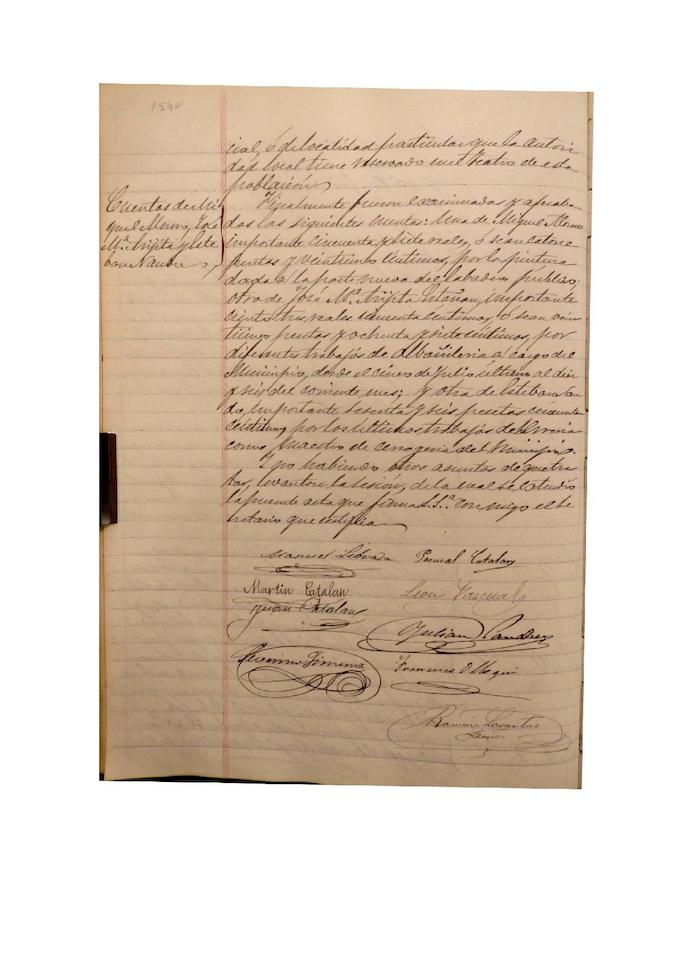 1542
cial, ó de localidad particular que la autori-
dad local tiene reservado en el teatro de esta
población.
Cuentas de Mi-
guel Moreno, José
Mª. Arpta y Este-
ban Nando
Igualmente fueron examinadas y aproba-
das las siguientes cuentas: Una de Miguel Moreno
importante cincuenta y siete reales, ó sean catorce
pesetas y veinticinco céntimos, por la pintura
dada a la parte nueva del labadero público;
otra de José Mª. importante
ciento tres reales cincuenta centimos, ó sean vein-
ticinco pesetas y ochenta y siete céntimos, por
diferentes trabajos de albañileria a cargo del
Municipio, desde el cinco de Julio último al diez
y seis del corriente mes; y otra de Esteban
importante sesenta y seis pesetas cincuenta
céntimos por los ultimos trabajos de
como Maestro de del Municipio.
Y no habiendo otros asuntos de que tra-
tar, levantaron la sesion, de la cual se estendió
la presente acta que firma S.Sª. con migo el Se-
cretario que certifica
Manuel Pascual Catalan
Martin Catalan Leon Pascual
Juan Catalan
Julian
Severino Gimena Francisco
Ramon